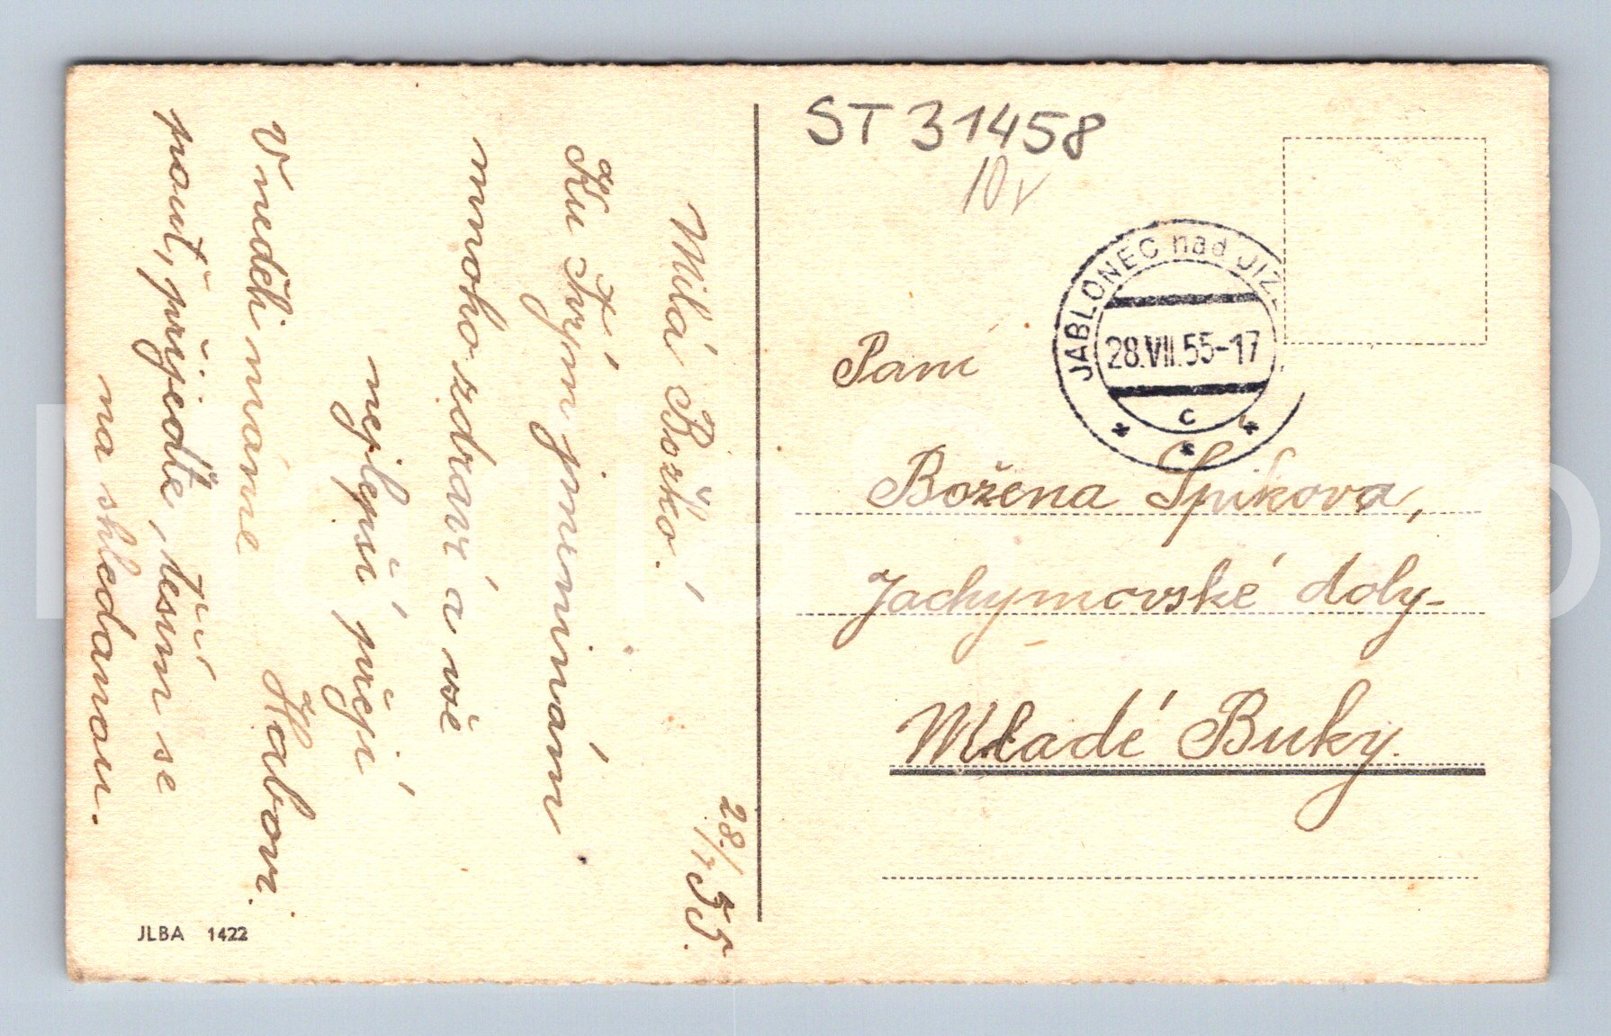 28./7 55.
Milá Božko!
Ku Tvým jmeninám
mnoho zdraví a vše
nejlepší přejí
Habovi.
V neděli máme
pouť, přijeďte, těším se
na shledanou.
JLBA 1422
ST 31458
10
JABLONEC nad JIZ
28.VII.55-17
c
Paní
Božena Špikova,
Jachymovské doly-
Mladé Buky.